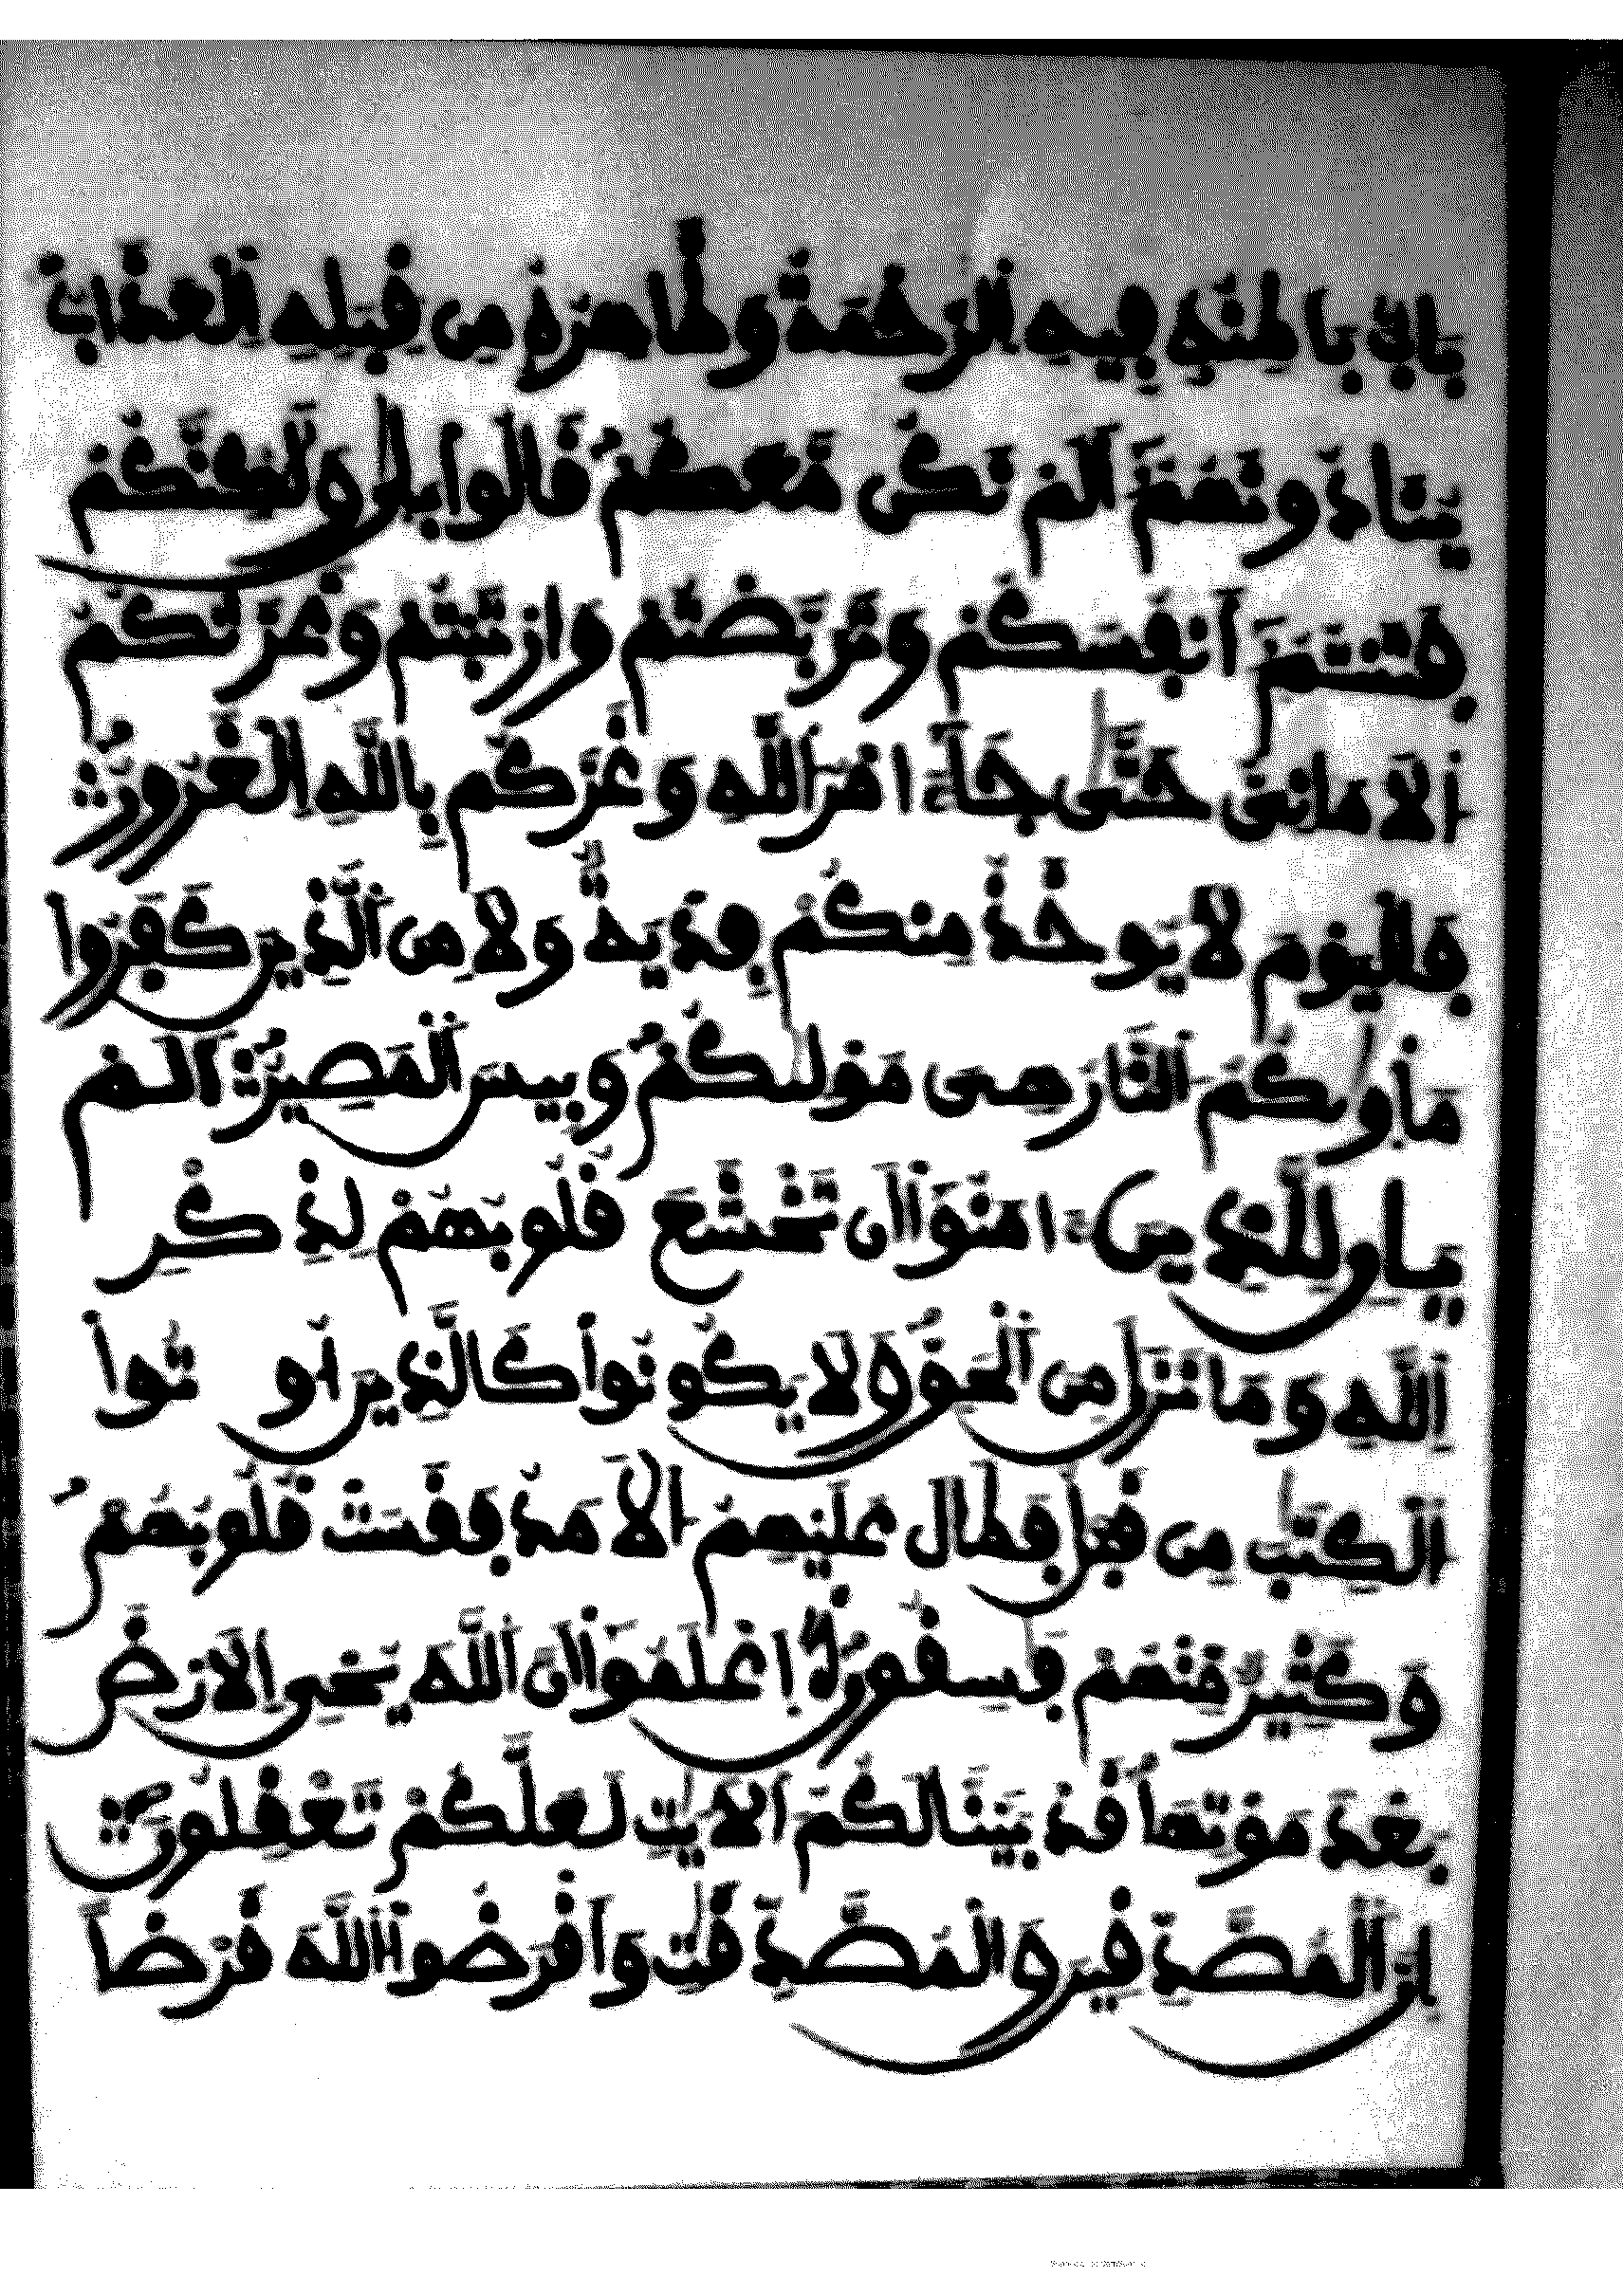 بَابٌ بَاطِنُهُ فِيهِ اِلرَّحْمَةُ وَظَاهِرُهُ مِن قِبَلِهِ اِلْعَذَابُ
يُنَادُونَهُمُ أَلَمْ نَكُن مَّعَكُمْ قَالُوا بَلَى وَلَكِنَّكُمْ
فَتَنتُمُ أَنفُسَكُمْ وَتَرَبَّصْتُمْ وَارْتَبْتُمْ وَغَرَّتْكُمُ
اُلاَمَانِىُّ حَتَّى جَآءَ امْرُ اللَّهِ وَغَرَّكُم بِاللَّهِ اِلْغَرُورُ
فَالْيَوْمَ لاَ يُوخَذُ مِنكُمْ فِدْيَةٌ وَلاَ مِنَ الَّذِينَ كَفَرُوا
مَأْوَىكُمُ النَّارُ هِىَ مَوْلَىكُمْ وَبِيسَ اَلْمَصِيرُ أَلَمْ
يَانِ لِلَّذِينَ ءَامَنُوا أَن تَخْشَعَ قُلُوبُهُمْ لِذِكْرِ
اِللَّهِ وَمَا نَزَلَ مِنَ اَلْحَقِّ وَلاَ يَكُونُوا كَالَّذِينَ أُوتُوا
اُلْكِتَبَ مِن قَبْلُ فَطَالَ عَلَيْهِمُ الاَمَدُ فَقَسَتْ قُلُوبُهُمْ
وَكَثِيرٌ مِّنْهُمْ فَسِقُونَ اِعْلَمُوا أَنَّ اَللَّهَ يُحْىِ اِلاَرْضَ
بَعْدَ مَوْتِهَا قَدْ بَيَّنَّا لَكُمُ الاَيَتِ لَعَلَّكُمْ تَعْقِلُونَ
إِنَّ اَلْمُصَّدِّقِينَ وَالْمُصَّدِّقَتِ وَأَقْرَضُوا اللَّهَ قَرْضاً